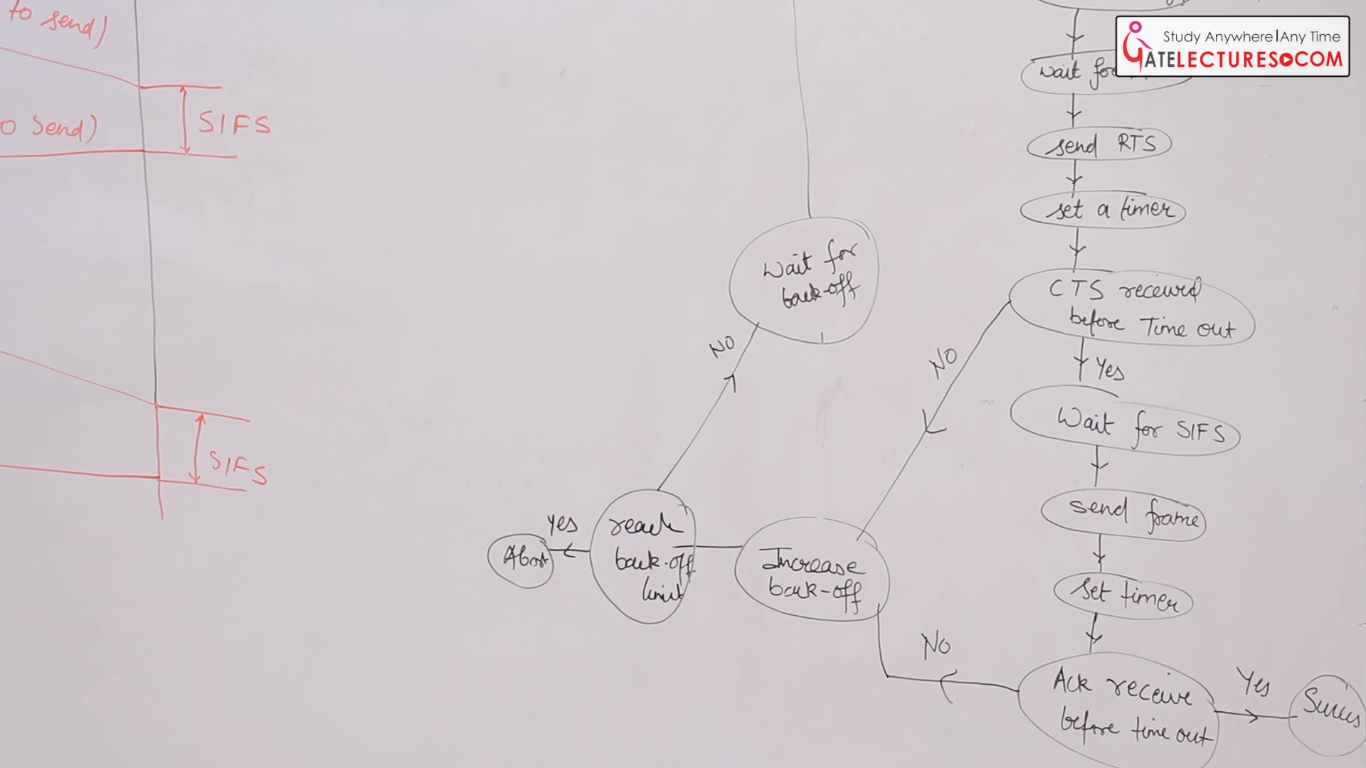 to send)
SIFS
to send)
SIFS
Study Anywhere|Any Time
GATELECTURES.COM
wait for
send RTS
set a timer
CTS received
before Time out
Yes
NO
Wait for SIFS
send frame
set timer
Ack receive
before time out
Yes
Success
No
Increase
back-off
reach
back-off
limit
Yes
Abort
NO
Wait for
back-off